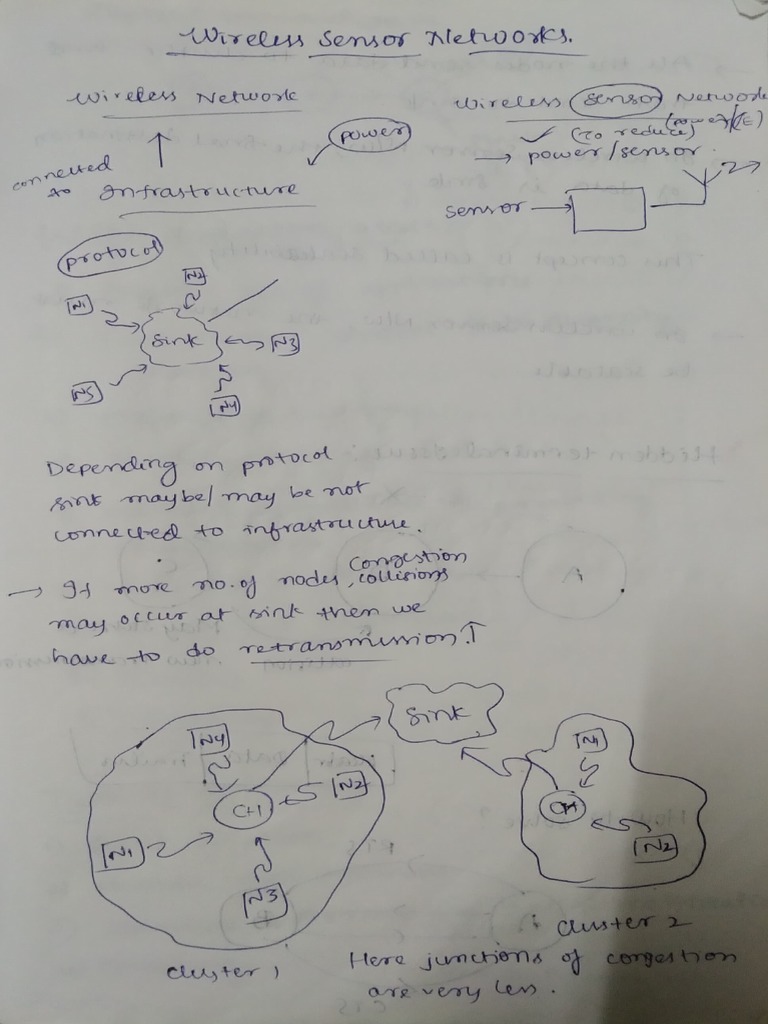 Wireless Sensor Networks.
Wireless Network
Wireless Sensor Network
(power) (E)
(To reduce)
power
→ power/sensor.
connected
to
Infrastructure
sensor
protocol
N2
N1
Sink
N3
N5
N4
Depending on protocol
sink maybe/ may be not
connected to infrastructure.
→ If more no. of nodes, Congestion
collisions
may occur at sink then we
have to do retransmission.↑
Sink
N4
N1
CH
N2
CH
N1
N2
N3
cluster 2
cluster 1
Here junctions of congestion
are very less.